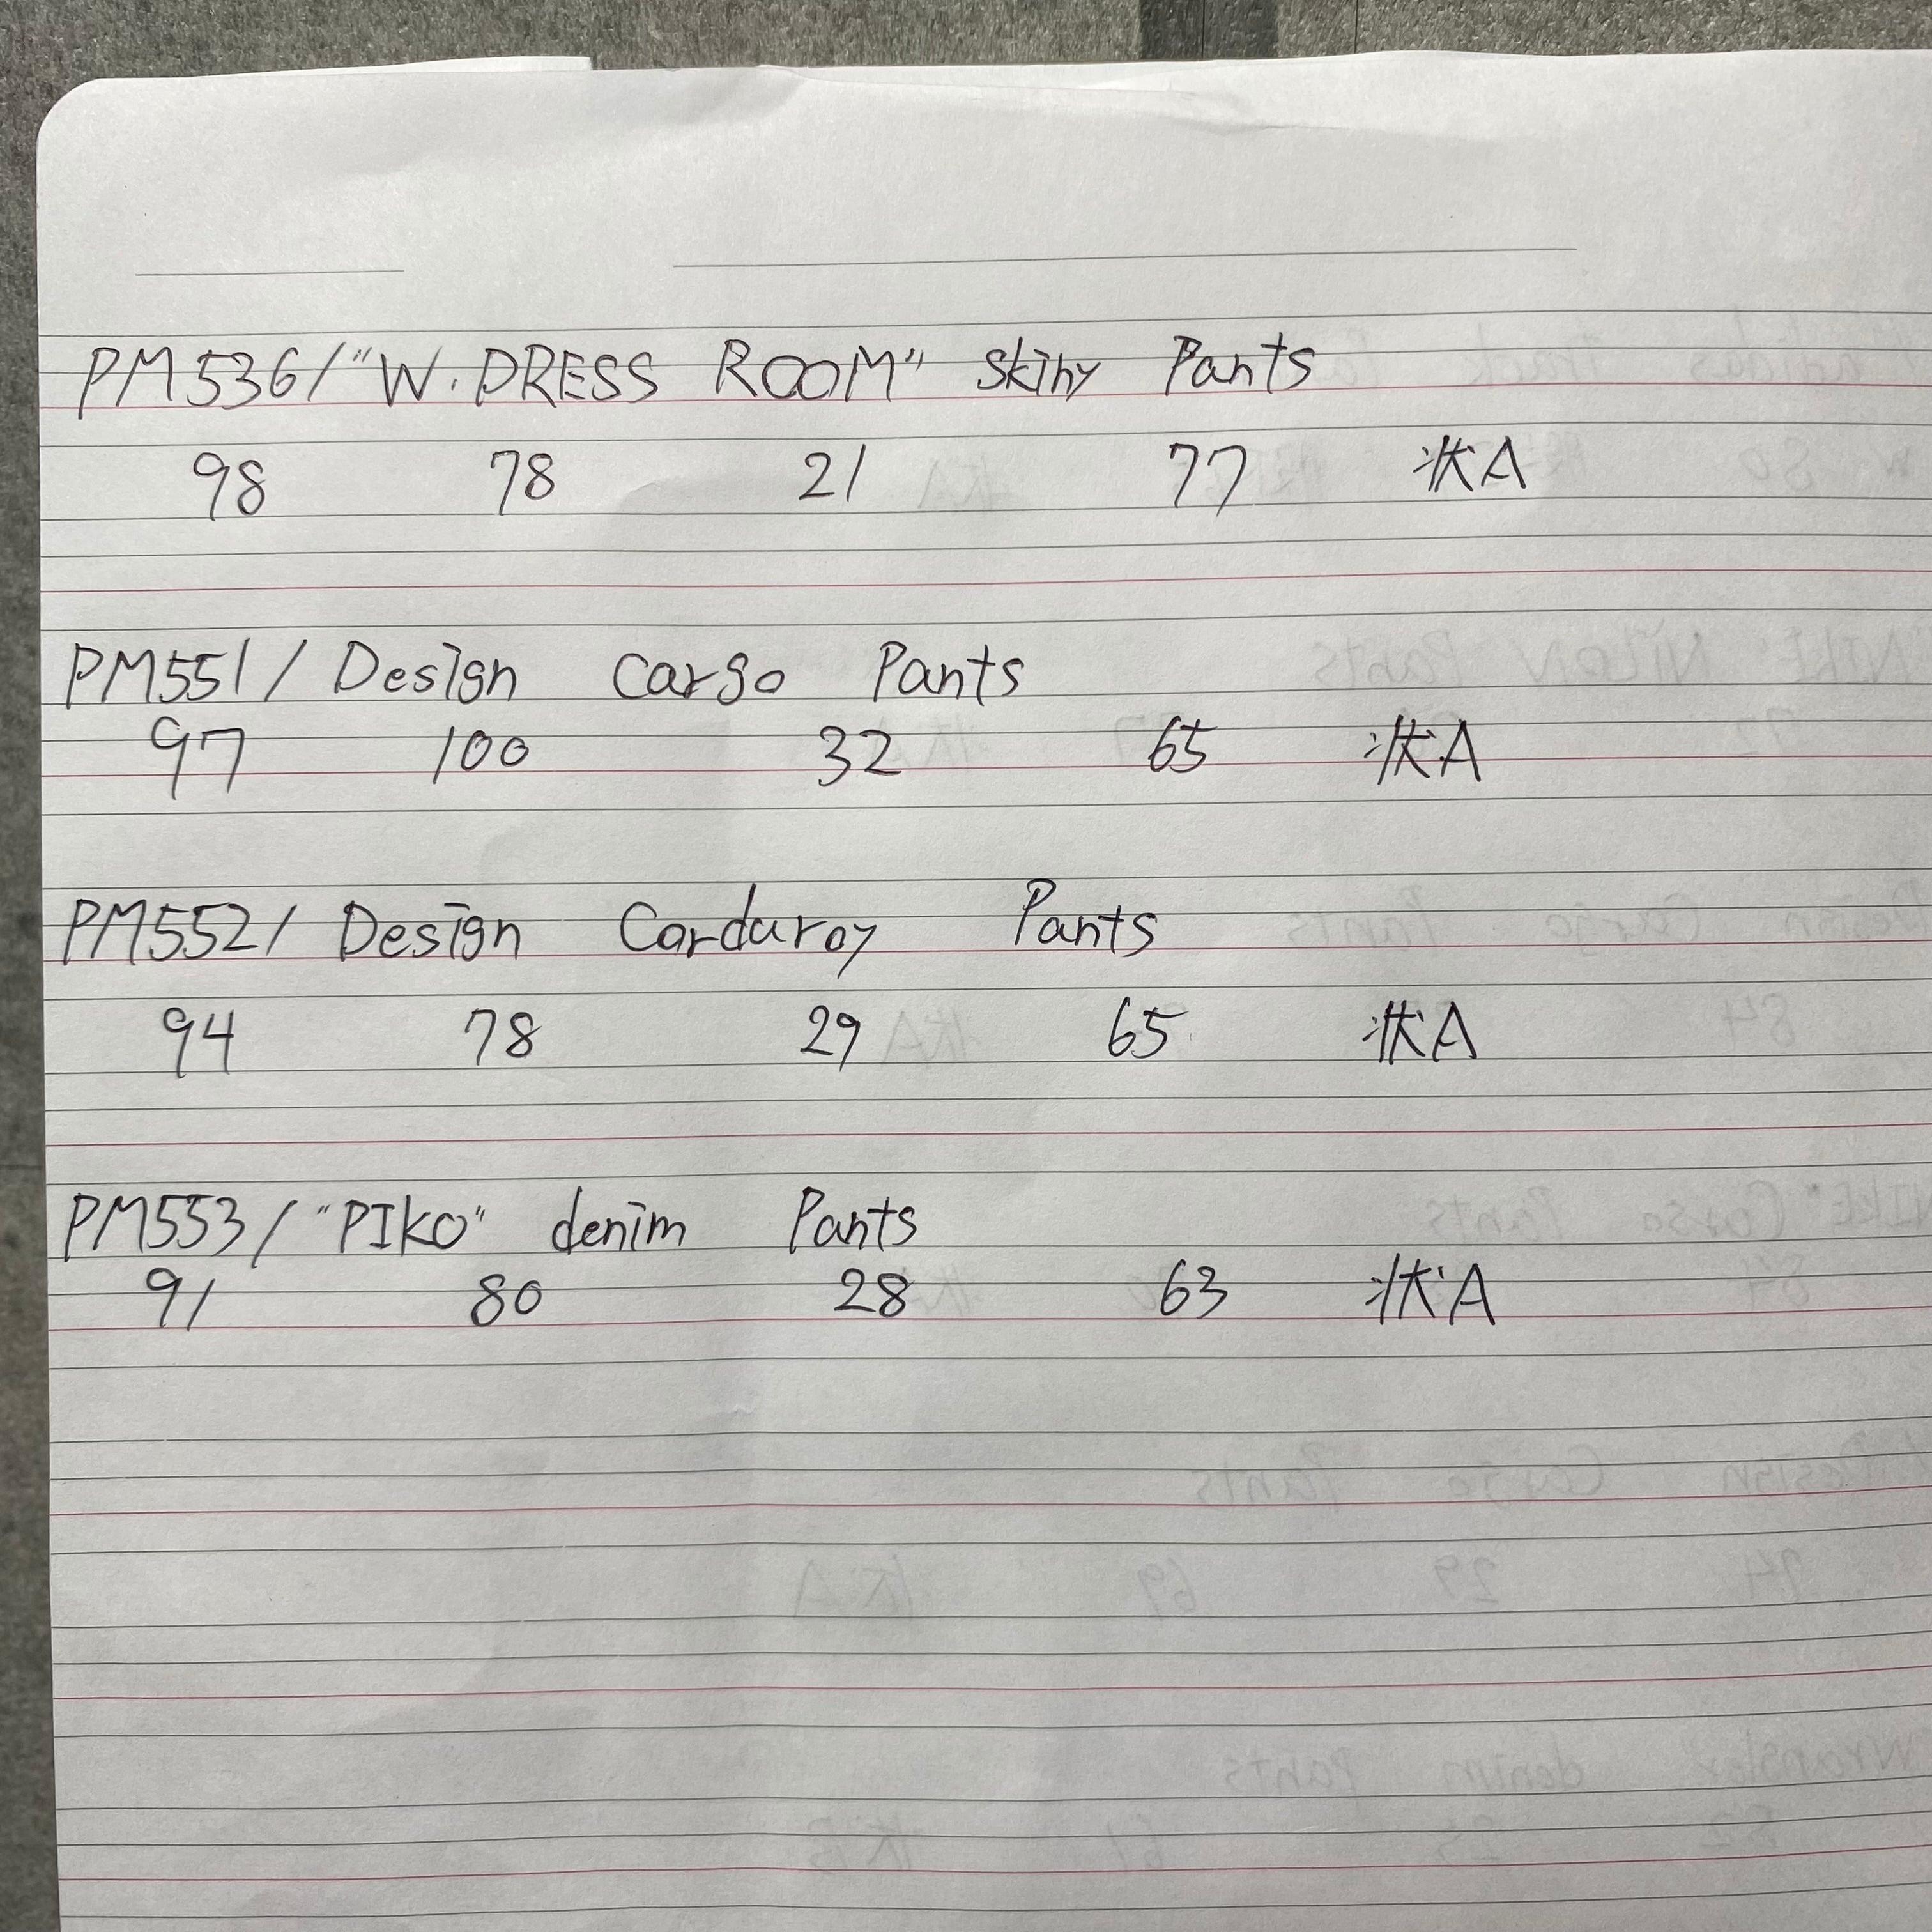 PM536/"W.DRESS ROOM" Skiny Pants
98 78 21 77 状A
PM551/ Design Cargo Pants
97 100 32 65 状A
PM552/ Design Corduroy Pants
94 78 29 65 状A
PM553/ "PIKO" denim Pants
91 80 28 63 状A